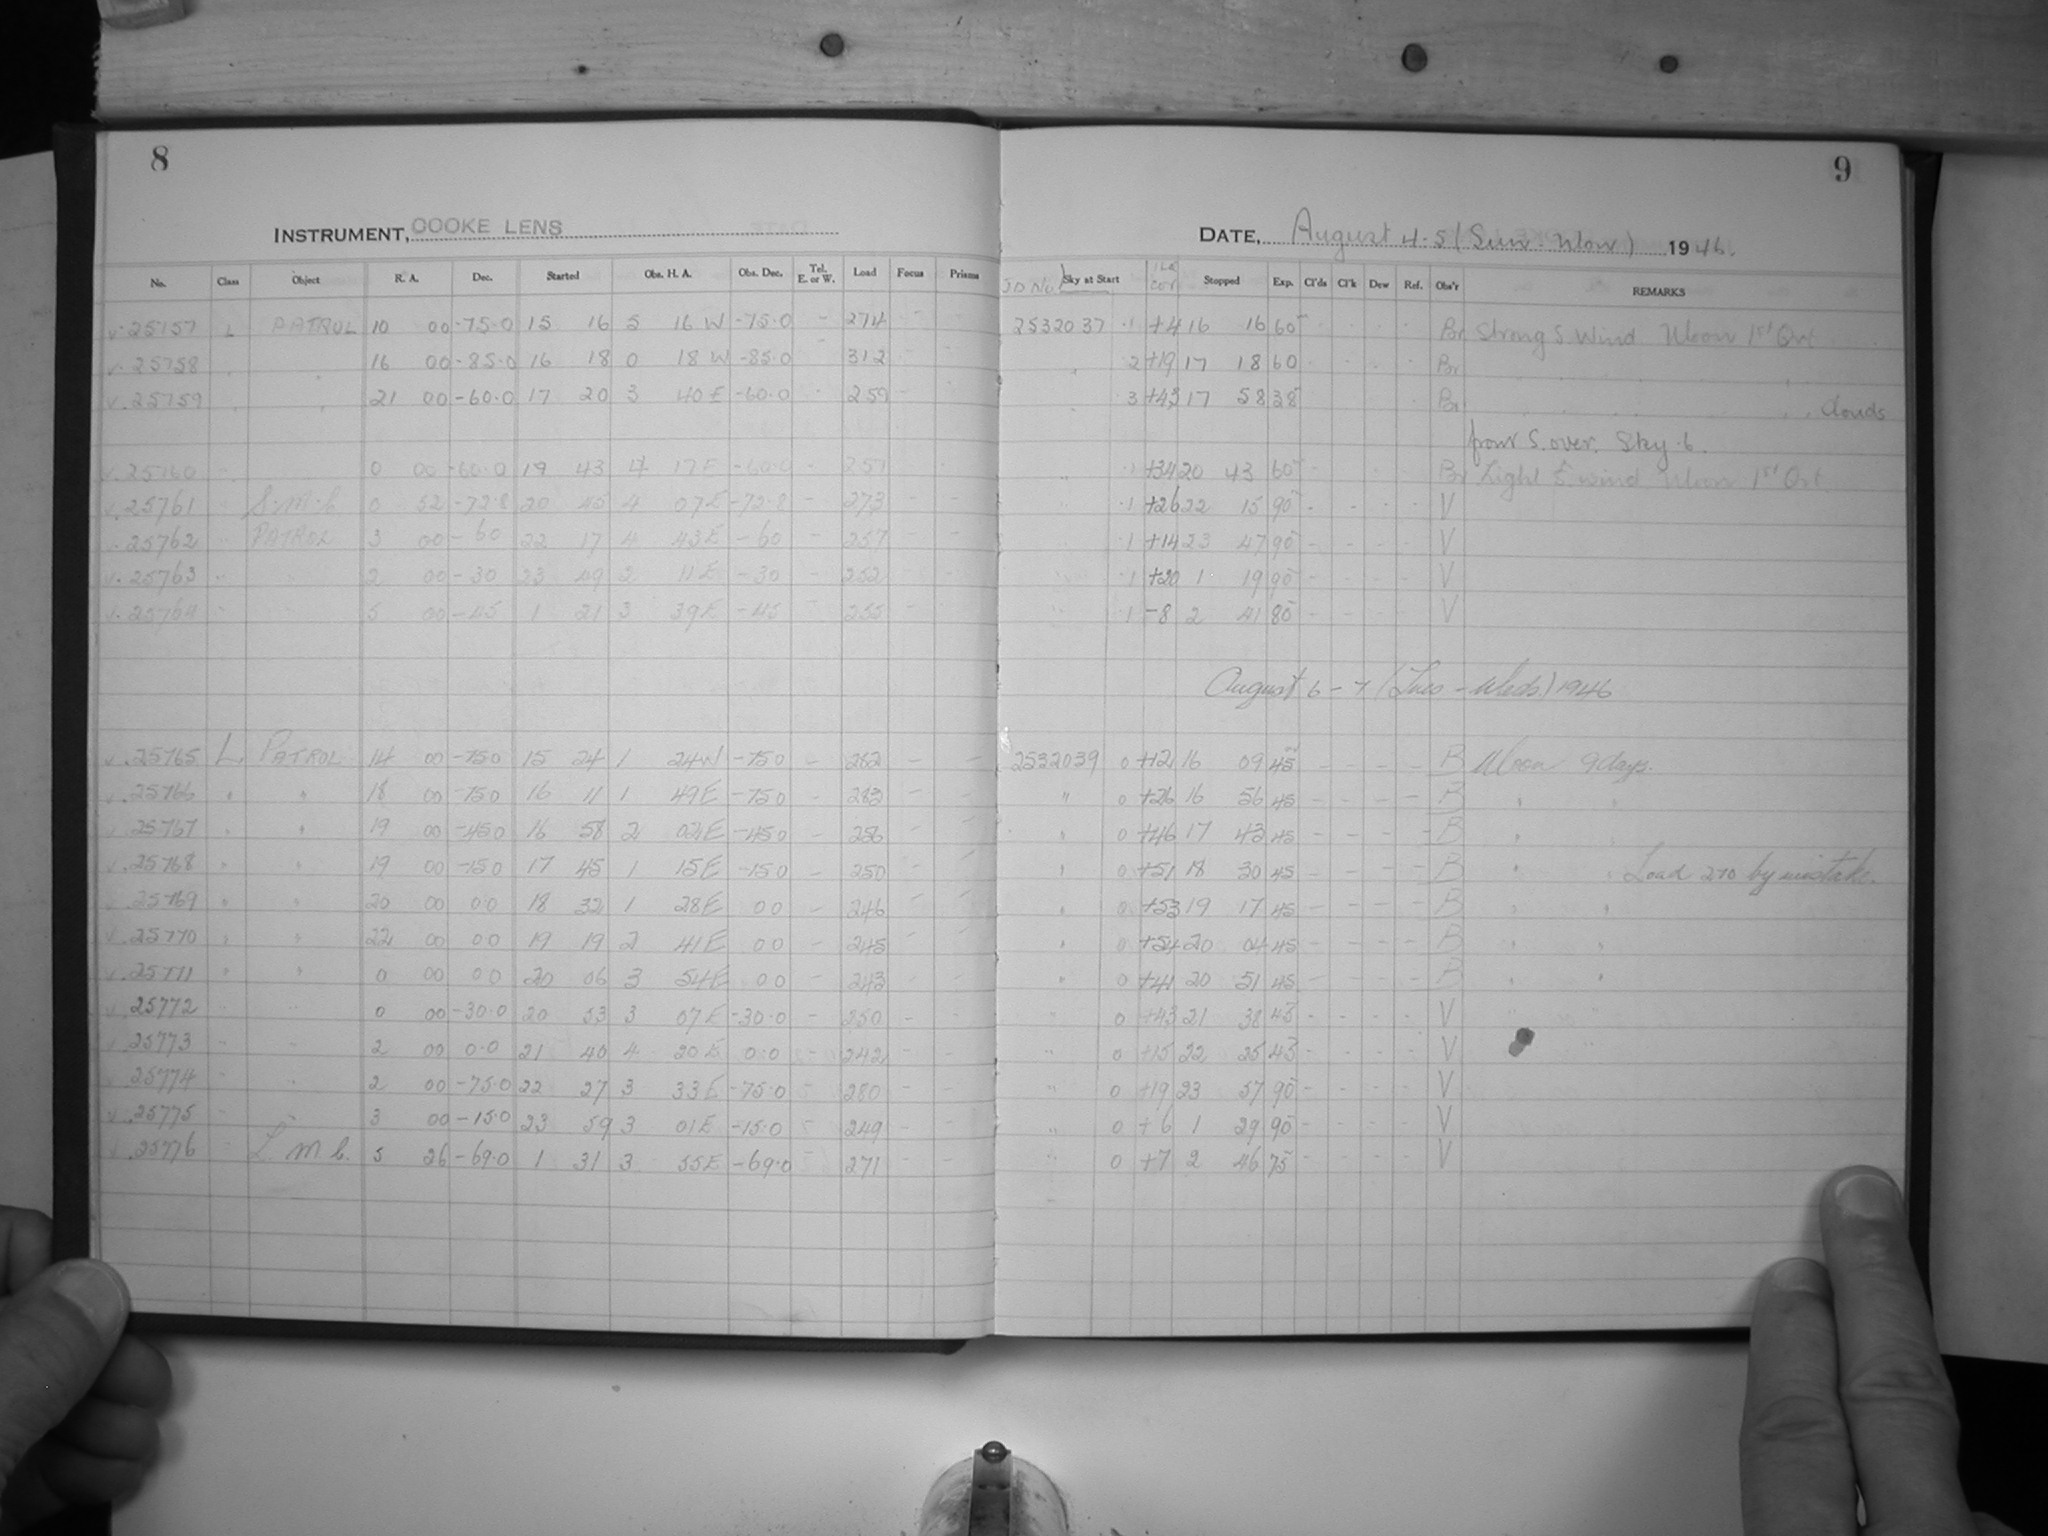 8
INSTRUMENT, COOKE LENS
No. Class Object R. A. Dec. Started Obs. H. A. Obs. Dec. Tel. E. or W. Load Focus Prisms
25757 L PATROL 10 00 -75.0 15 16 5 16 W -75.0 - 274 - -
25758 16 00 -85.0 16 18 0 18 W -85.0 312
25759 21 00 -60.0 17 20 3 40 E -60.0 - 259
25760 0 00 -60.0 19 43 4 17 E -60.0 - 257
25761 S.M.C. 0 52 -72.8 20 45 4 07 E -72.8 - 273 - -
25762 PATROL 3 00 -60 22 17 4 43 E -60 - 257 - -
25763 2 00 -30 23 49 2 11 E -30 - 252 - -
25764 5 00 -45 1 21 3 39 E -45 - 255 - -
25765 L PATROL 14 00 -75.0 15 24 1 24 W -75.0 - 282 - -
25766 " " 18 00 -75.0 16 11 1 49 E -75.0 - 283 - -
25767 " " 19 00 -45.0 16 58 2 02 E -45.0 - 256 - -
25768 " " 19 00 -15.0 17 45 1 15 E -15.0 - 250 - -
25769 " " 20 00 0.0 18 32 1 28 E 0.0 - 246 - -
25770 " " 22 00 0.0 19 19 2 41 E 0.0 - 245 - -
25771 " " 0 00 0.0 20 06 3 54 E 0.0 - 243 - -
25772 " " 0 00 -30.0 20 53 3 07 E -30.0 - 250 - -
25773 " " 2 00 0.0 21 40 4 20 E 0.0 - 242 - -
25774 " " 2 00 -75.0 22 27 3 33 E -75.0 280 - -
25775 " 3 00 -15.0 23 59 3 01 E -15.0 249 - -
25776 " L.M.C. 5 26 -69.0 1 31 3 55 E -69.0 271 - -
9
DATE, August 4-5 (Sun-Mon) 1946.
JD No. Sky at Start Stopped Exp. Cl'ds Cl'k Dew Ref. Obs'r REMARKS
2532037 .1 +4 16 16 60 Br Strong S. Wind Moon 1st Qrt
" 2 +19 17 18 60 Br
" 3 +43 17 58 38 Br " clouds
from S. over. Sky 6.
" .1 +34 20 43 60 Br Light E wind Moon 1st Qrt.
" .1 +26 22 15 90 - - - - V
" .1 +14 23 47 90 - - - - V
" .1 +20 1 19 90 - - - - V
" .1 -8 2 41 80 - - - - V
August 6-7 (Tues-Weds) 1946
2532039 0 +12 16 09 45 - - - - B Moon 9 days.
" 0 +26 16 56 45 - - - - B "
" 0 +46 17 43 45 - - - - B "
" 0 +51 18 30 45 - - - - B " " Load 270 by mistake.
" 0 +53 19 17 45 - - - - B " "
" 0 +54 20 04 45 - - - - B " "
" 0 +41 20 51 45 - - - - B " "
" 0 +43 21 38 45 - - - - V " "
" 0 +15 22 25 45 - - - - V "
" 0 +19 23 57 90 - - - - V
" 0 +6 1 29 90 - - - - V
" 0 +7 2 46 75 - - - - V